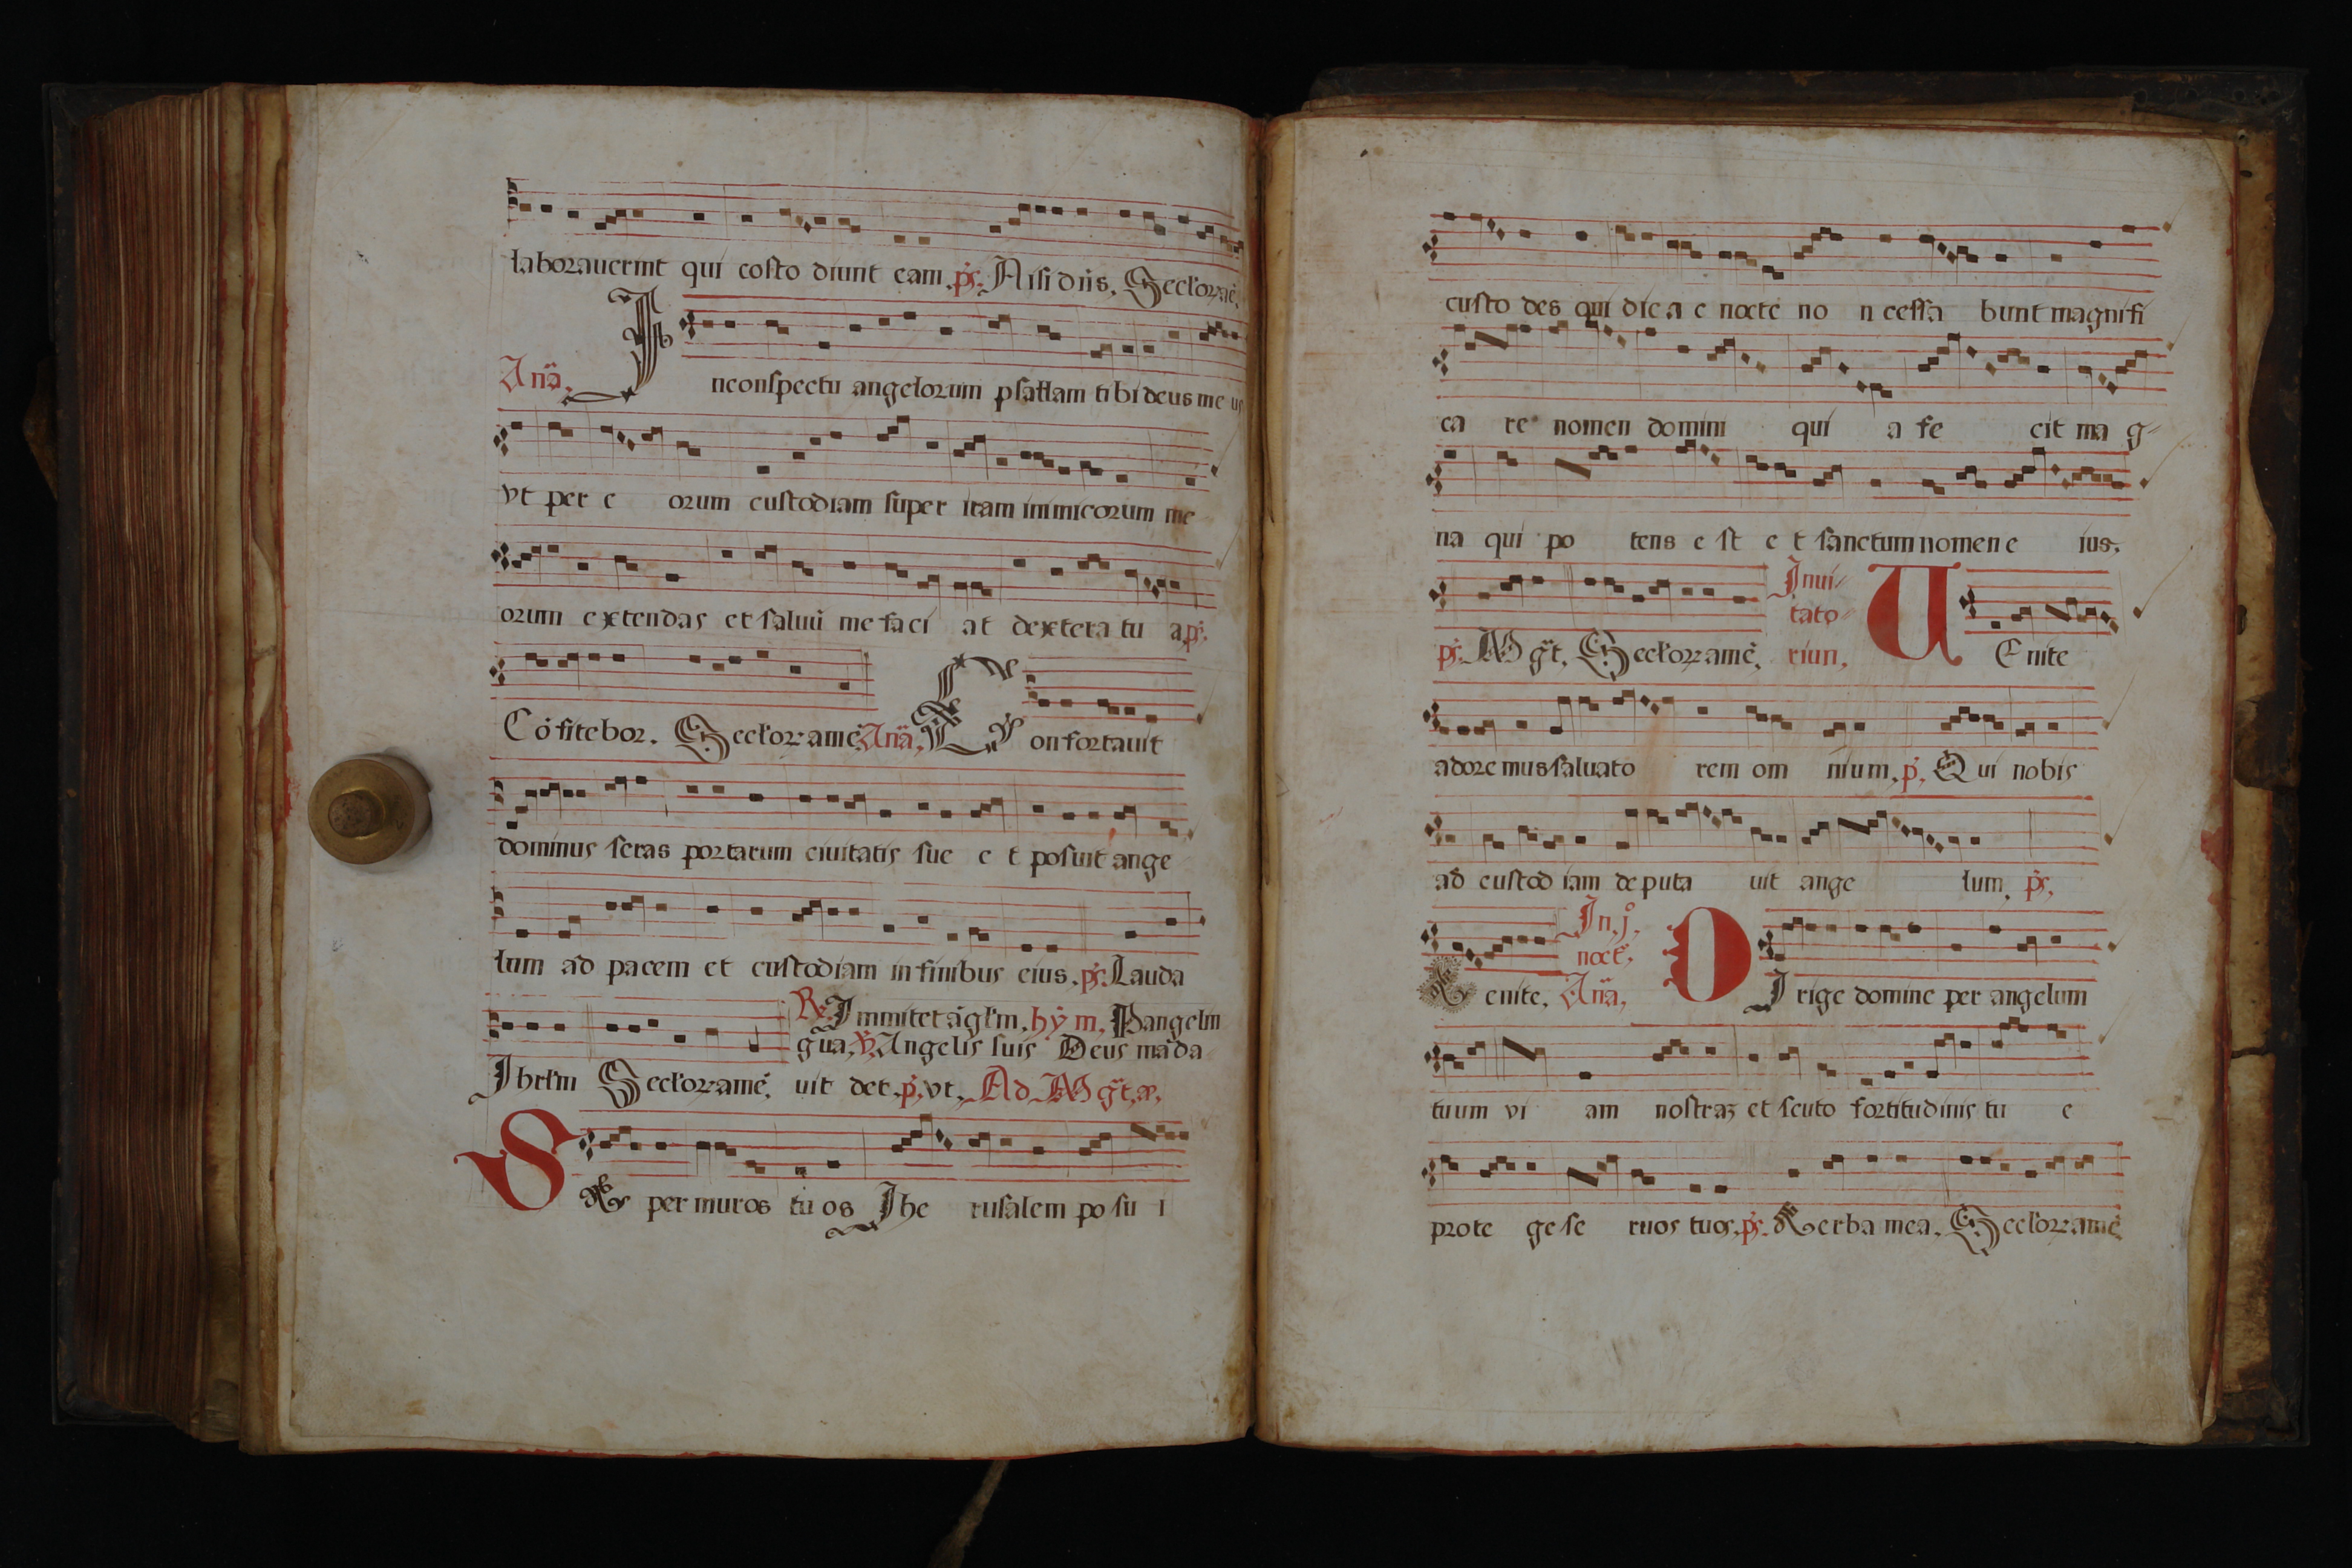 laborauerint qui costo diunt eam. ps. Nisi dñs. Seculoꝝ amē.
Anã. In conspectu angelorum psallam tibi deus me us
vt per e orum custodiam super iram inimicorum me
orum extendas et saluū me faci at dextera tu a ps.
Cōfitebor. Seculoꝝ amē. Anã, Confortauit
dominus seras portarum ciuitatis sue e t posuit ange
lum ad pacem et custodiam in finibus eius. ps. Lauda
℟. Immitet āgl'm. hym, Pangelin
gua, ℣, Angelis suis Deus māda
Ihrl'm Seculoꝝ amē, uit det. p, vt, Ad Mgt, a,
Super muros tu os Ihe rusalem po su i
custo des qui die a e nocte no n cessa bunt magnifi
ca re nomen domini qui a fe cit ma g-
na qui po tens e st e t sanctum nomen e ius.
ps. Mgt. Seculoꝝ amē, Inui-
tato-
rium, UEnite
adoremus saluato rem om nium, p, Qui nobis
ad custod iam deputa uit ange lum. ps,
Uenite. In. j.
noct. Anã, DIrige domine per angelum
tuum vi am nostraȝ et scuto fortitudinis tu e
prote ge se ruos tuos. ps. Verba mea. Seculoꝝ amē